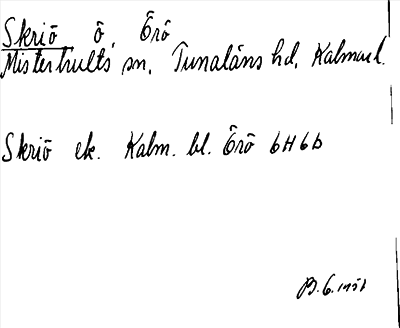 Skriö, ö, Örö
Misterhults sn, Tunaläns hd, Kalmar l.
Skriö ek. Kalm. bl. Örö 6H6b